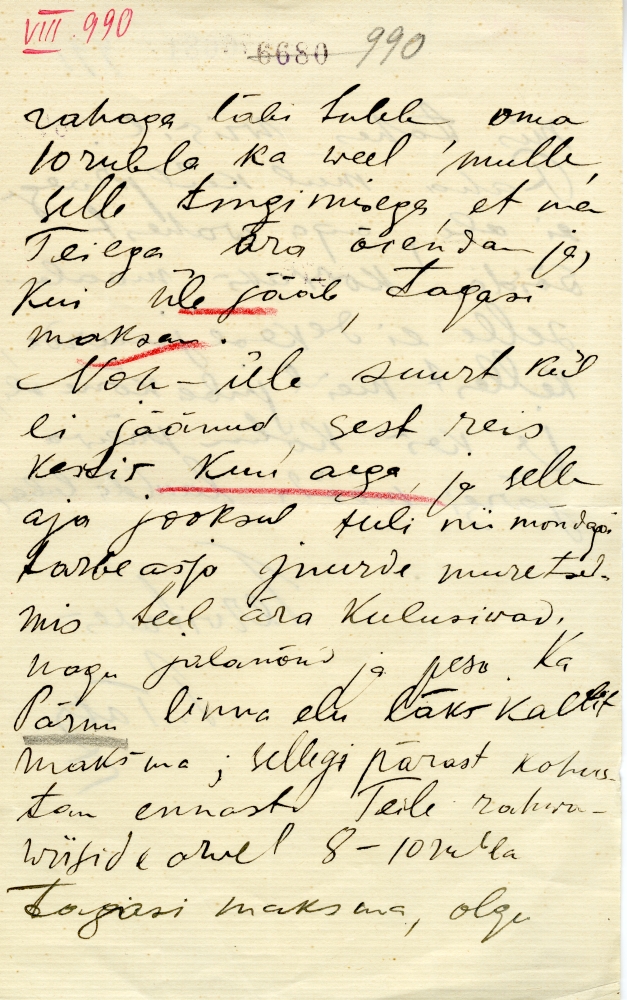 VIII 990
6680 990
rahaga läbi tulla oma
10 rubla ka weel mulle,
selle tingimisega, et ma
Teiega ära õiendan ja,
kui üle jääb, tagasi
maksan.
Noh – üle suurt küll
ei jäänud, sest reis
kestis kuu aega, ja selle
aja jooksul tuli nii mõndgi
tarbeasja juurde muretseda
mis teel ära kulusiwad,
nagu jalanõud ja pesu. Ka
Pärnu linna elu läks kallist
maksma; sellegi pärast kohus-
tan ennast Teile rahwa-
wiiside arvel 8–10 rubla
tagasi maksma, olgu